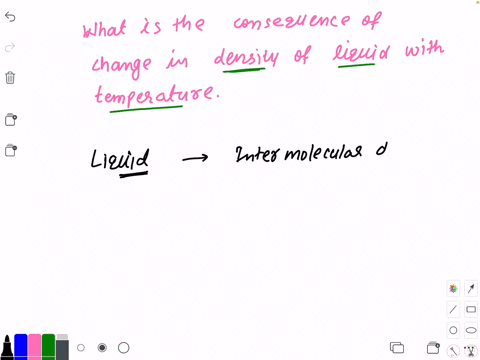 What is the consequence of
change in density of liquid with
temperature.
Liquid → Intermolecular d